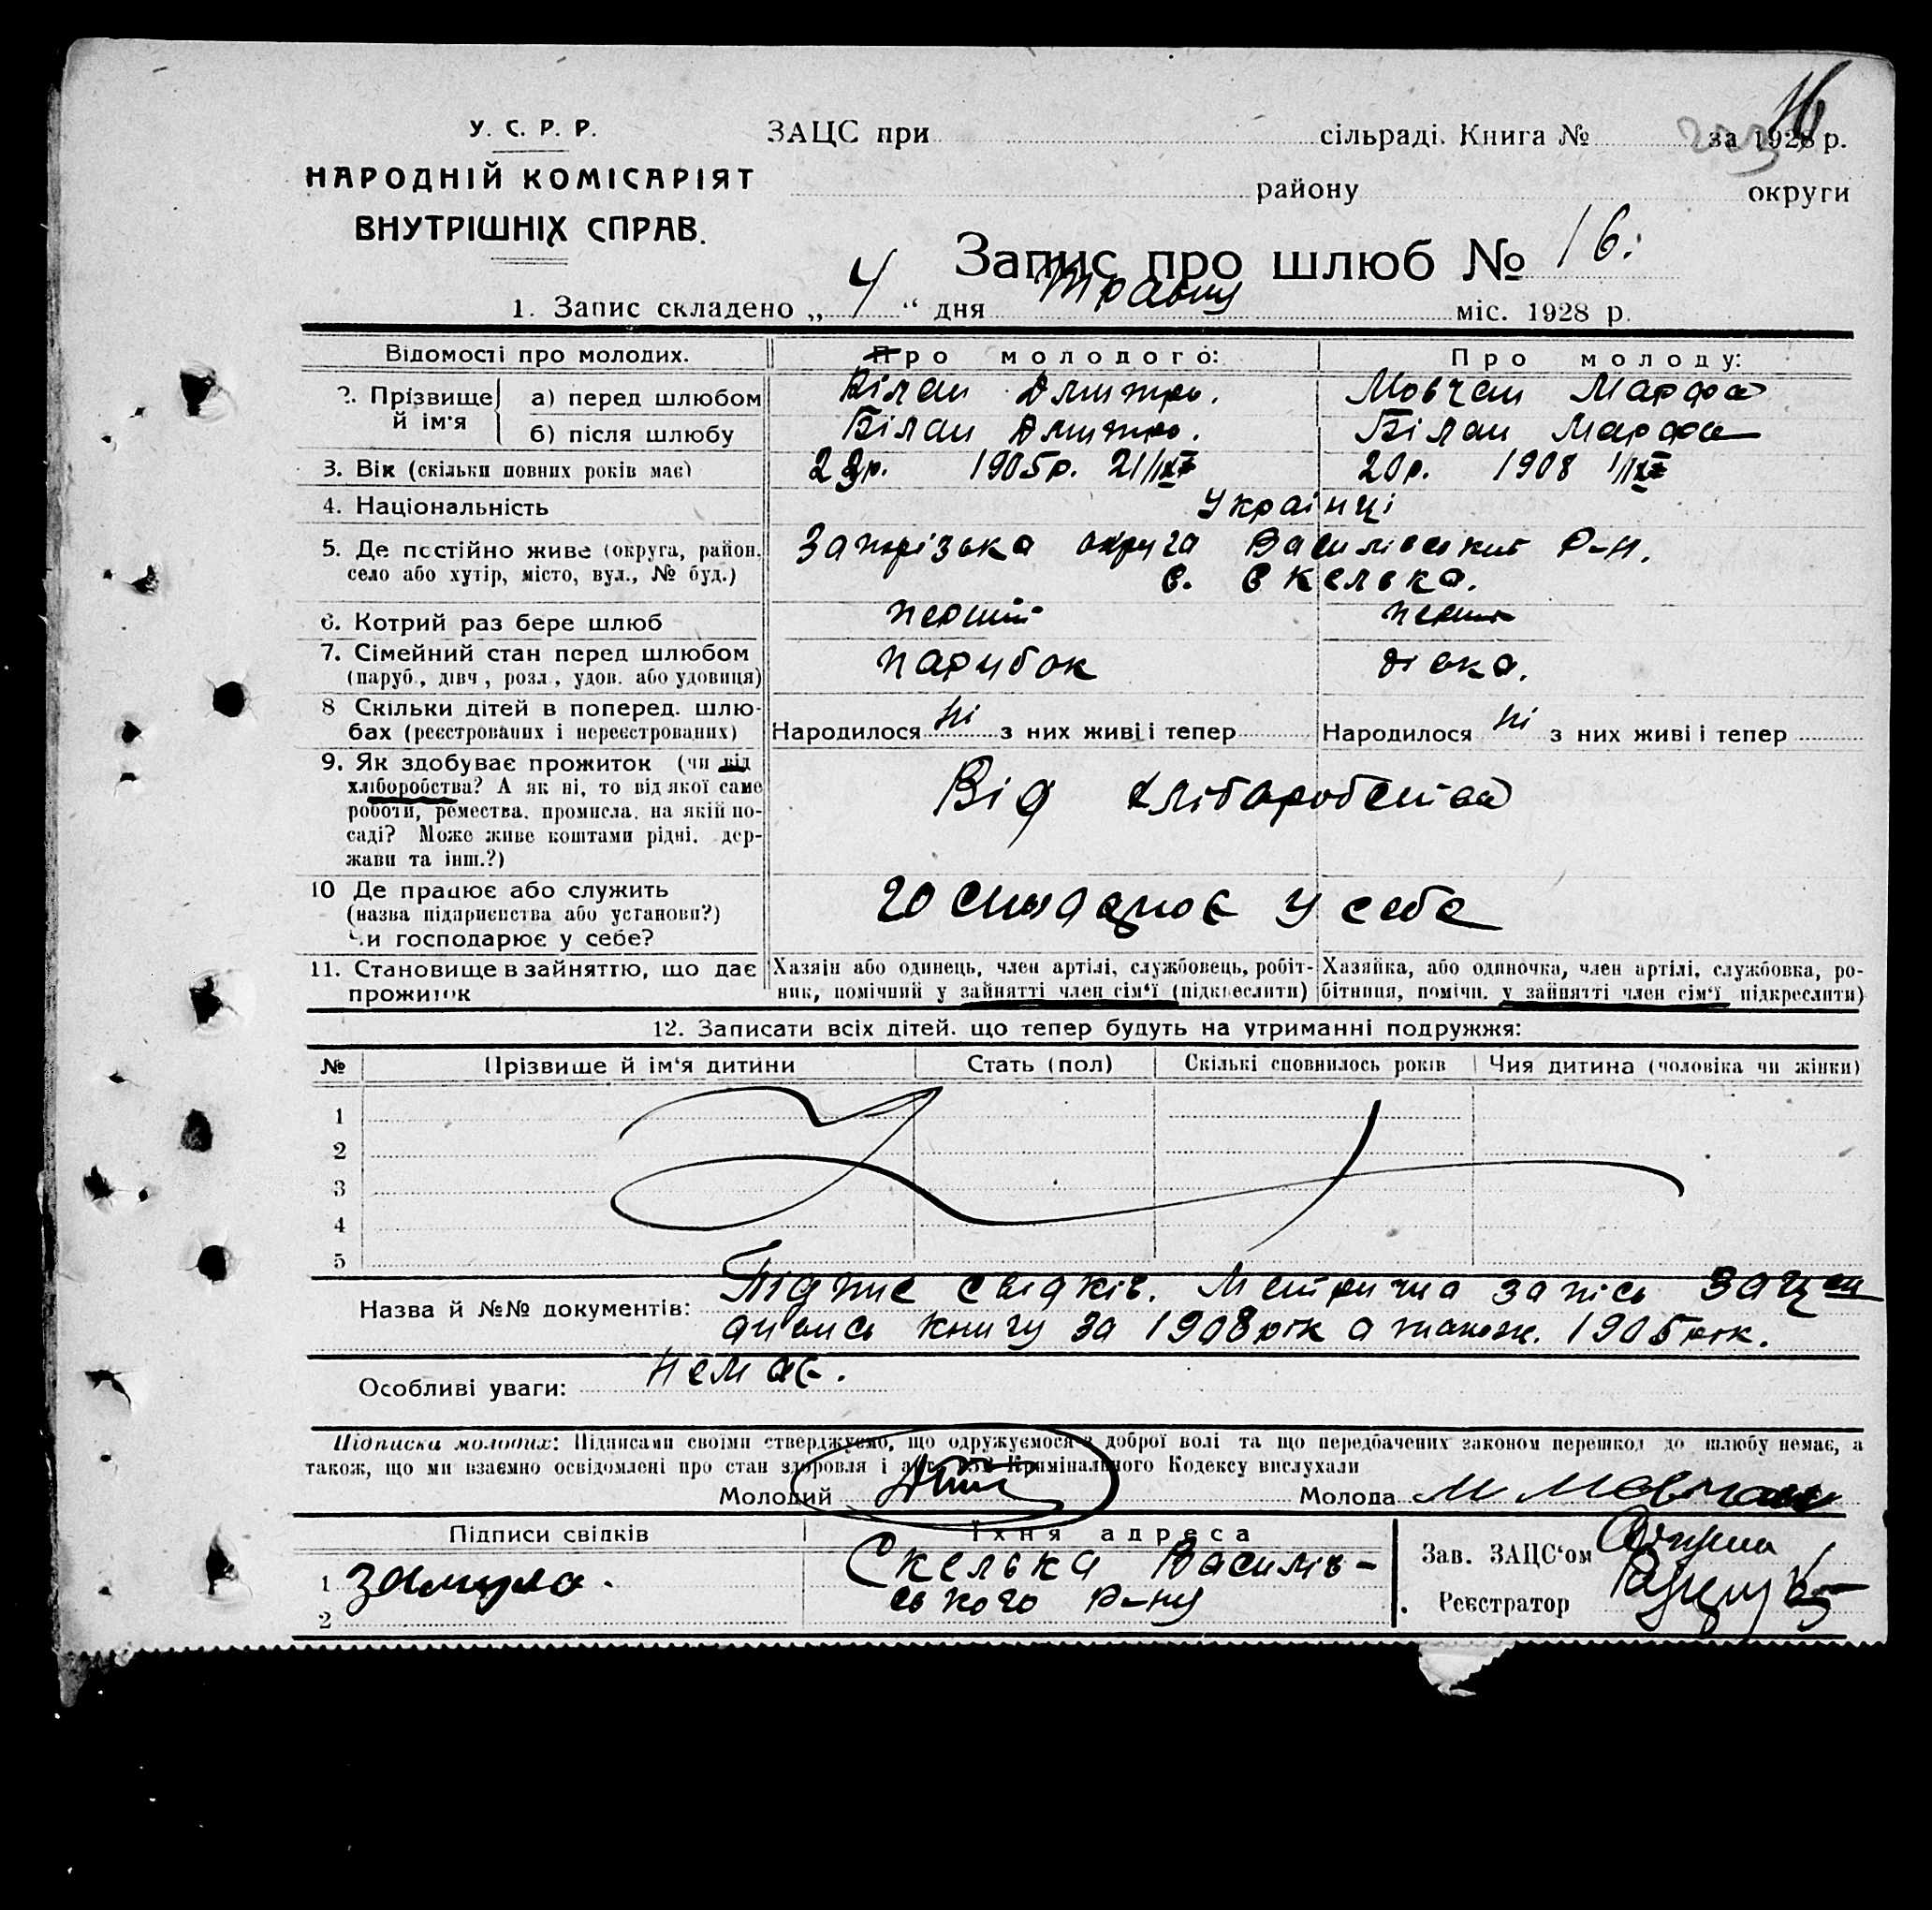 16
У. С. Р. Р.
НАРОДНІЙ КОМІСАРІЯТ
ВНУТРІШНІХ СПРАВ.
ЗАЦС при сільраді. Книга № за 1928 р.
району округи
Запис про шлюб № 16.
1. Запис складено „ 4 “ дня Травня міс. 1928 р.
Відомості про молодих. Про молодого: Про молоду:
2. Прізвище й ім'я
а) перед шлюбом Білан Дмитро. Мовчан Марфа
б) після шлюбу Білан Дмитро. Білан Марфа
3. Вік (скільки повних років має) 23р. 1905р. 20р. 1908
4. Національність Українці
5. Де постійно живе (округа, район, Запорізька округа Василівський Р-н.
село або хутір, місто, вул., № буд.) с. Скелька.
6. Котрий раз бере шлюб перший перший
7. Сімейний стан перед шлюбом парубок дівка.
(паруб., дівч., розл., удов. або удовиця)
8 Скільки дітей в поперед. шлю-
бах (реєстрованих і нереєстрованих) Народилося ні з них живі і тепер Народилося ні з них живі і тепер
9. Як здобуває прожиток (чи від
хліборобства? А як ні, то від якої саме Від хліборобства
роботи, ремества, промисла, на якій по-
саді? Може живе коштами рідні, дер-
жави та інш.?)
10 Де працює або служить
(назва підприємства або установи?) господарює у себе
Чи господарює у себе?
11. Становище в зайняттю, що дає Хазяін або одинець, член артілі, службовець, робіт- Хазяйка, або одиночка, член артілі, службовка, ро-
прожиток ник, помічний у зайнятті член сім‘ї (підкреслити) бітниця, помічн. у зайнятті член сім‘ї підкреслити)
12. Записати всіх дітей, що тепер будуть на утриманні подружжя:
№ Прізвище й ім‘я дитини Стать (пол) Скількі сповнилось років Чия дитина (чоловіка чи жінки)
1
2
3
4
5
Назва й №№ документів: Підпис свідків. Метрична запісь
книгу за 1908 рік а також. 1905 рік.
Особливі уваги: Немає.
Підписка молодих: Підписами своїми стверджуємо, що одружуємося з доброї волі та що передбачених законом перешкод до шлюбу немає, а
також, що ми взаємно освідомлені про стан здоровля і арт. Кримінального Кодексу вислухали
Молодий Молода М Мовчан
Підписи свідків Їхня адреса
Зав. ЗАЦС‘ом
1 Замула. Скелька Василів-
2 ського р-ну Реєстратор